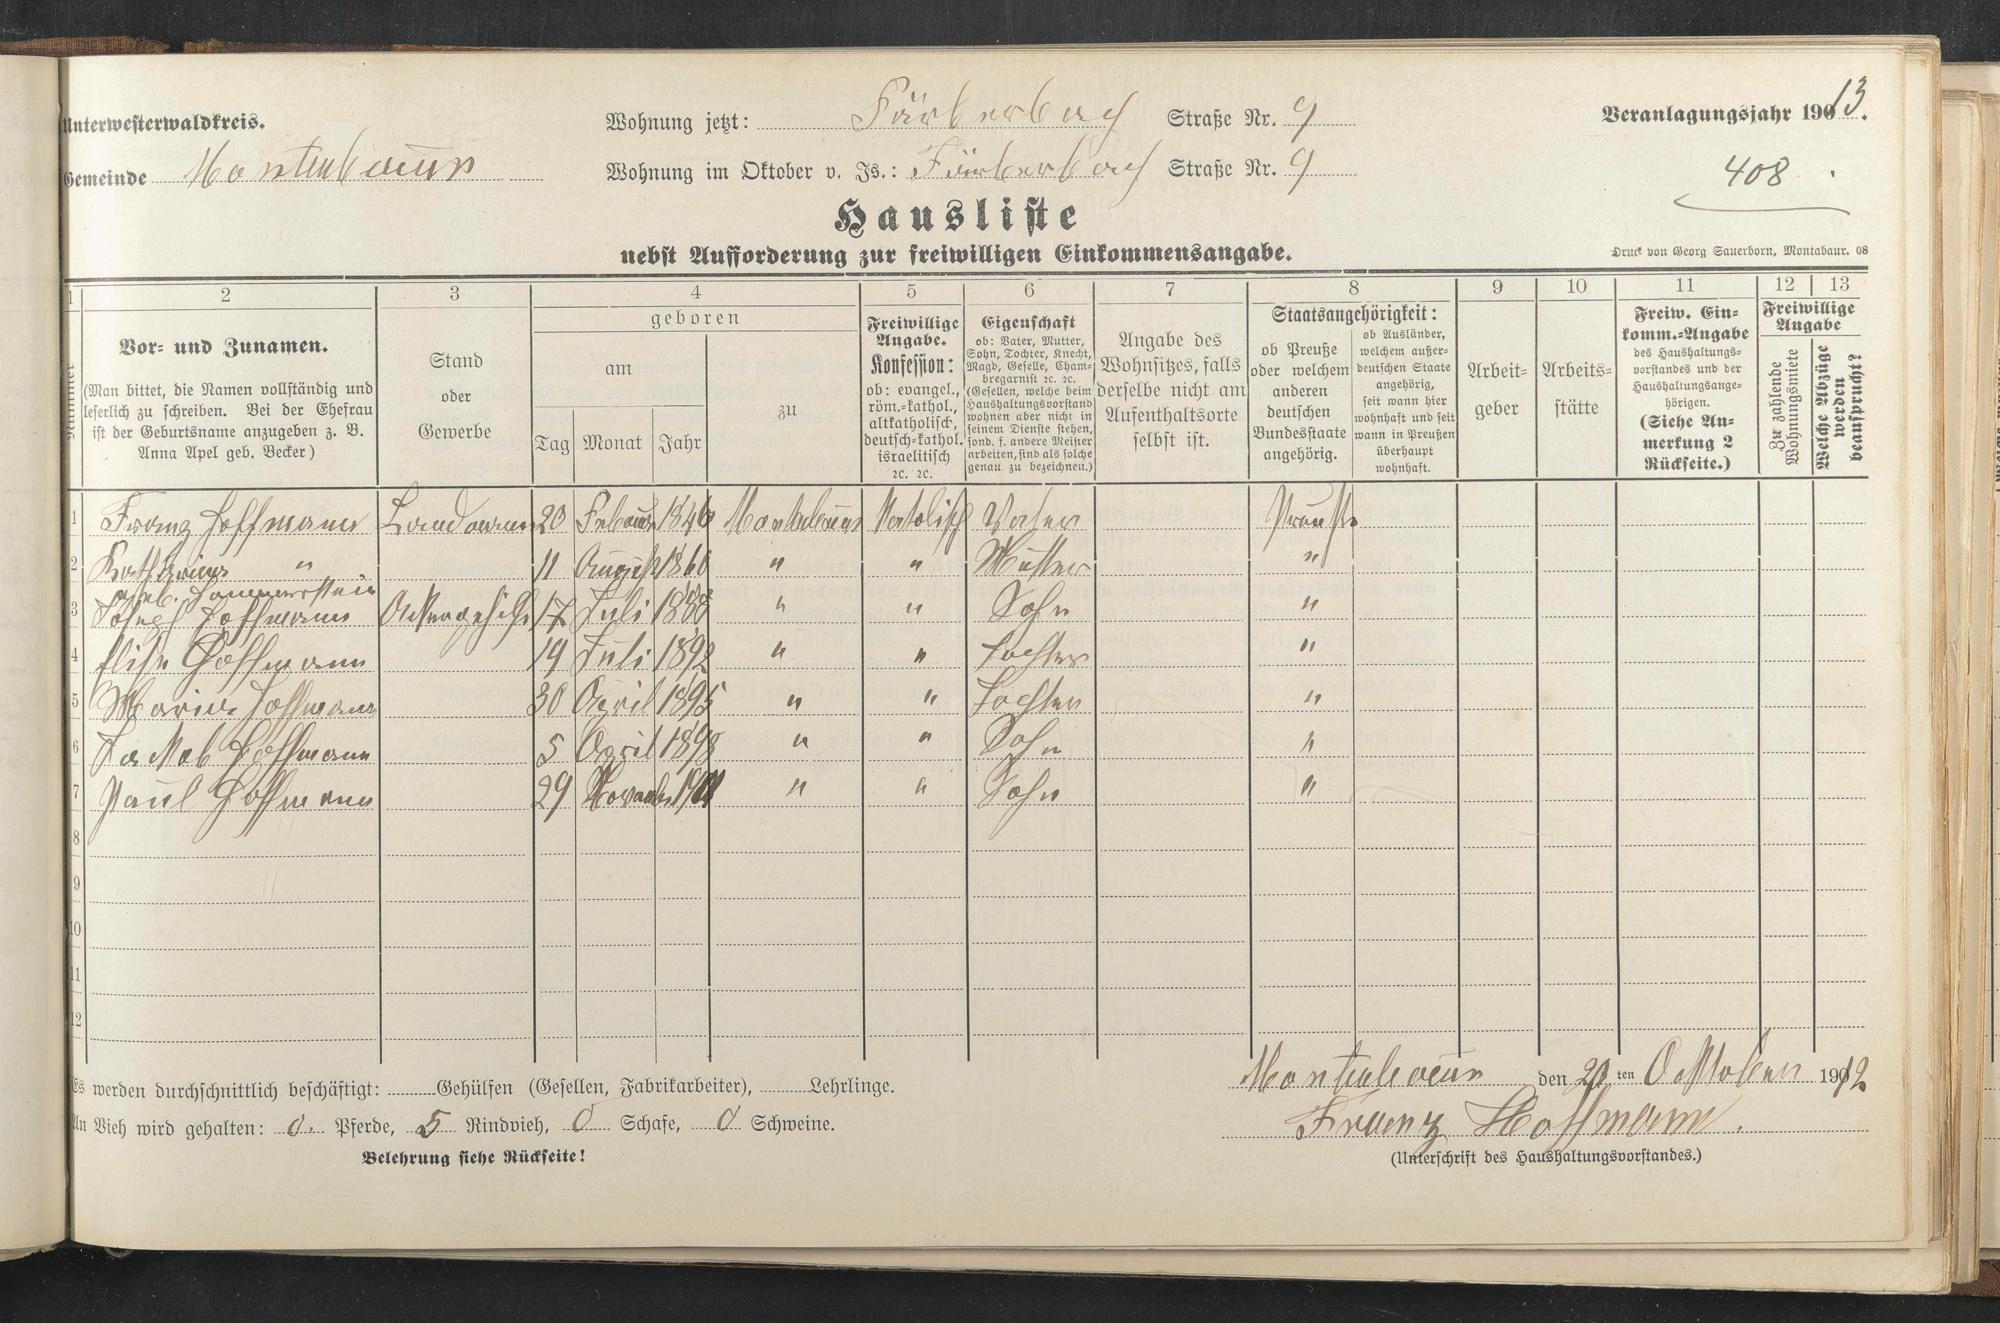 Unterwesterwaldkreis.
Gemeinde Montabaur
Wohnung jetzt: Färberbach Straße Nr. 9
Wohnung im Oktober v. Js.: Färberbach Straße Nr. 9
Veranlagungsjahr 1913.
408
Hausliste
nebst Aufforderung zur freiwilligen Einkommensangabe.
Druck von Georg Sauerborn, Montabaur. 08
1 2 3 4 5 6 7 8 9 10 11 12 13
Nummer
Vor- und Zunamen.
(Man bittet, die Namen vollständig und
leserlich zu schreiben. Bei der Ehefrau
ist der Geburtsname anzugeben z. B.
Anna Apel geb. Becker)
Stand
oder
Gewerbe
geboren
am
Tag Monat Jahr
zu
Freiwillige
Angabe.
Konfession:
ob: evangel.,
röm.-kathol.,
altkatholisch,
deutsch-kathol.
israelitisch
2c. 2c.
Eigenschaft
ob: Vater, Mutter,
Sohn, Tochter, Knecht,
Magd, Geselle, Cham-
bregarnist 2c. 2c.
(Gesellen, welche beim
Haushaltungsvorstand
wohnen aber nicht in
seinem Dienste stehen,
sond. f. andere Meister
arbeiten, sind als solche
genau zu bezeichnen.)
Angabe des
Wohnsitzes, falls
derselbe nicht am
Aufenthaltsorte
selbst ist.
Staatsangehörigkeit:
ob Preuße
oder welchem
anderen
deutschen
Bundesstaate
angehörig.
ob Ausländer,
welchem außer-
deutschen Staate
angehörig,
seit wann hier
wohnhaft und seit
wann in Preußen
überhaupt
wohnhaft.
Arbeit-
geber
Arbeits-
stätte
Freiw. Ein-
komm.-Angabe
des Haushaltungs-
vorstandes und der
Haushaltungsange-
hörigen.
(Siehe An-
merkung 2
Rückseite.)
Freiwillige
Angabe
Zu zahlende
Wohnungsmiete
Welche Abzüge
werden
beansprucht?
1 Franz Hoffmann Landmann 20 Februar 1846 Montabaur Katolisch Vater Preuße
2 Katharina " 11 August 1860 " " Mutter "
geb. Hammerstein
3 Joseph Hoffmann Ackergehilfe 17 Juli 1888 " " Sohn "
4 Elise Hoffmann 19 Juli 1892 " " Tochter "
5 Maria Hoffmann 30 April 1895 " " Tochter "
6 Jakob Hoffmann 5 April 1898 " " Sohn "
7 Paul Hoffmann 29 " " Sohn "
8
9
10
11
12
Es werden durchschnittlich beschäftigt: Gehülfen (Gesellen, Fabrikarbeiter), Lehrlinge.
An Vieh wird gehalten: 0. Pferde, 5 Rindvieh, 0 Schafe, 0 Schweine.
Belehrung siehe Rückseite!
Montabaur den ten Oktober 1912
Franz Hoffmann.
(Unterschrift des Haushaltungsvorstandes.)